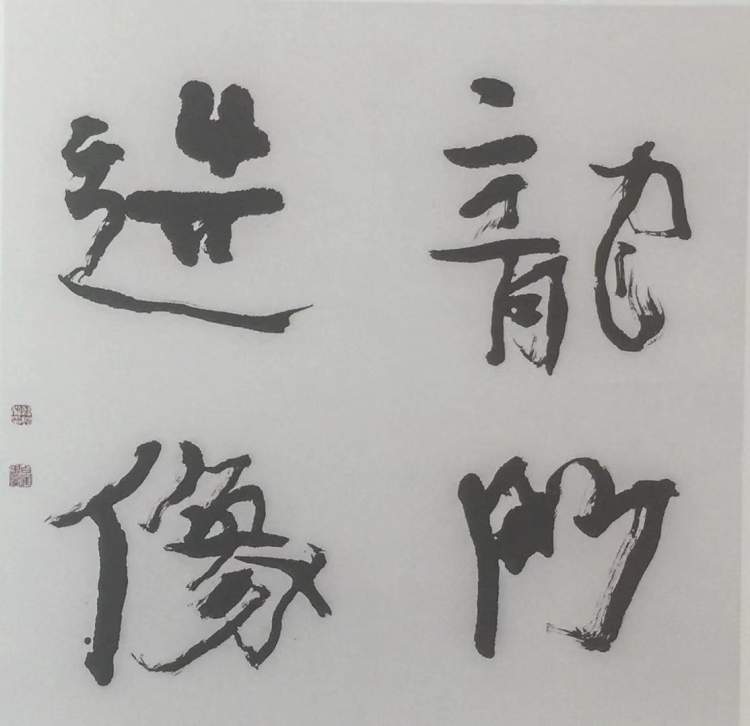 龍門
造像